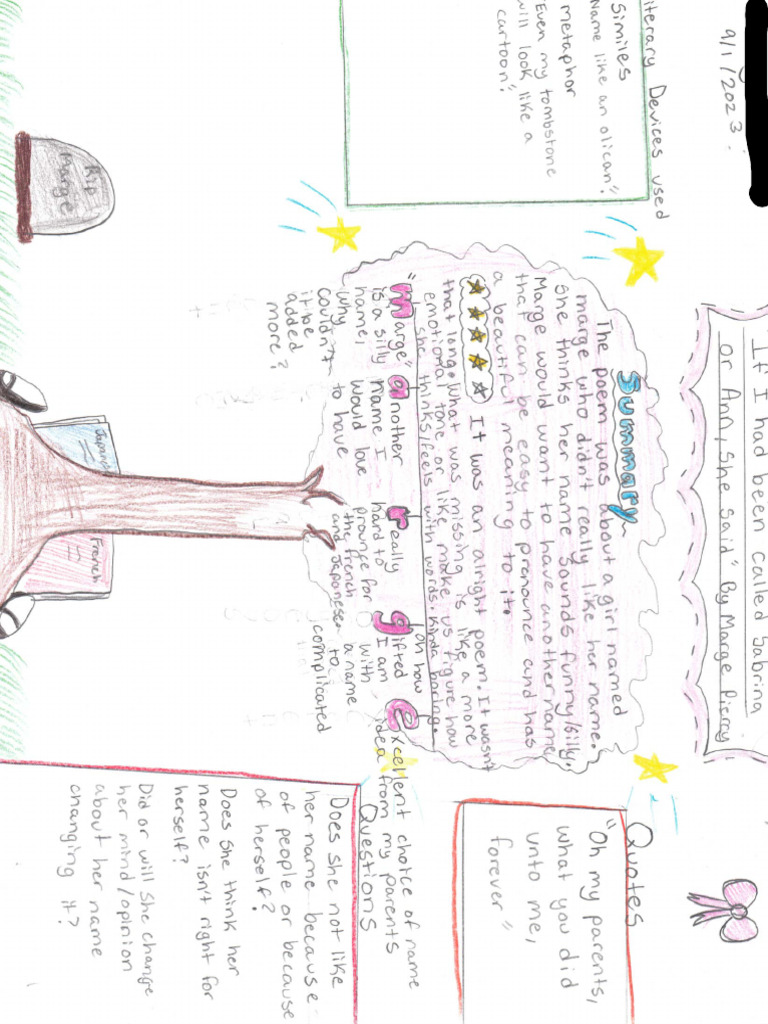 9/1/2023
If I had been called Sabrina
or Ann, she said" By Marge Piercy
iterary Devices used
Similes
Name like an olican."
metaphor
"Even my tombstone
will look like a
cartoon".
Summary
The poem was about a girl named
marge who didn't really like her name.
She thinks her name sounds funny/silly.
Marge would want to have another name
that can be easy to pronounce and has
a beautiful meaning to it.
It was an alright poem. It wasn't
that long. What was missing is like a more
emotional tone or like make us figure how
she thinks/feels with words. Kinda boring.
"Marge"
is a silly
name,
why
couldn't
it be
added
more?
another
name I
would love
to have
really
hard to
prounce for
the french
and Japonesea
oh how
gifted
I am
with
a name
to
complicated
excellent choice of name
idea from my parents
Quotes
"Oh my parents,
what you did
unto me,
forever"
Questions
Does she not like
her name because
of people or because
of herself?
Does she think her
name isn't right for
herself?
Did or will she change
her mind/opinion
about her name
changing it?
Rip
Marge
French